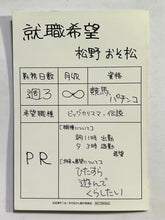 就職希望
松野 おそ松
勤務日数 月収 資格
週3 ∞ 競馬 パチンコ
希望職種 ビッグカリスマ・伝説
PR
朝11時 出勤
夕3時 退勤
希望
ひたすら
遊んで
くらしたい